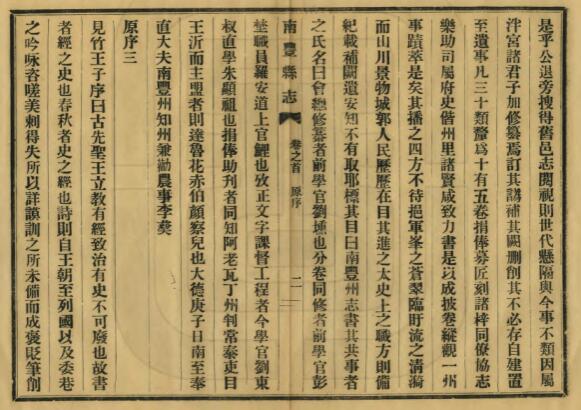 是乎公退旁搜得舊邑志閱視則世代懸隔與今事不類因屬
泮宮諸君子加修纂焉訂其譌補其闕刪創其不必存自建置
至遺事凡三十類釐爲十有五卷捐俸募匠刻諸梓同僚協志
樂助司屬府史偕州里諸賢咸致力書是以成披卷縱觀一州
事蹟萃是矣其播之四方不待挹軍峯之蒼翠臨盱流之清漪
而山川景物城郭人民歷歷在目其進之太史上之職方則備
紀載補闕遺安知不有取耶標其目曰南豐州志書其共事者
之氏名曰會纏修纂者前學官劉壎也分卷同修者前學官彭
南豐縣志
卷之首
原序
二
埜職員羅安道上官鯉也攷正文字課督工程者今學官劉東
叔直學朱顯祖也捐俸助刊者同知阿老瓦丁州判常泰吏目
王沂而主盟者則達魯花赤伯顔察兒也大德庚子日南至奉
直大夫南豐州知州兼勸農事李彜
原序三
見竹王子序曰古先聖王立敎有經致治有史不可廢也故書
者經之史也春秋者史之經也詩則自王朝至列國以及委巷
之吟咏咨嗟美刺得失所以詳謨訓之所未備而成褒貶筆削